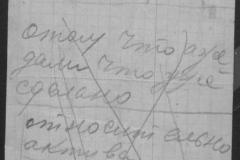 о том что уже
дали что уже
сделано
относительно
актива